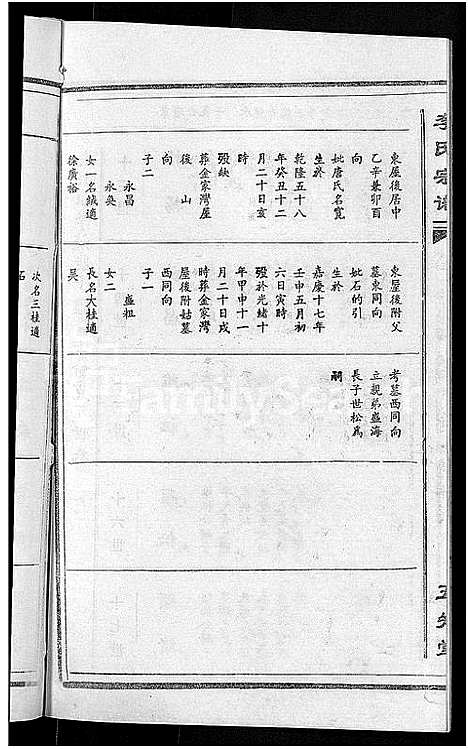 李氏宗譜
東屋後居中
乙辛兼卯酉
向
妣唐氏名寬
生於
乾隆五十八
年癸丑十二
月二十日亥
時
歿缺
葬金家灣屋
後山
向
子二
永昌
永奐
女一名絨適
徐廣裕
東屋後附父
墓東同向
妣石的引
生於
嘉慶十七年
壬申五月初
六日寅時
歿於光緒十
年甲申十一
月二十日戌
時葬金家灣
屋後附姑墓
西同向
子一
盛祖
女二
長名大桂適
吳
次名三桂適
石
考墓西同向
立親弟盛海
長子世松爲
嗣
十六世
十七世